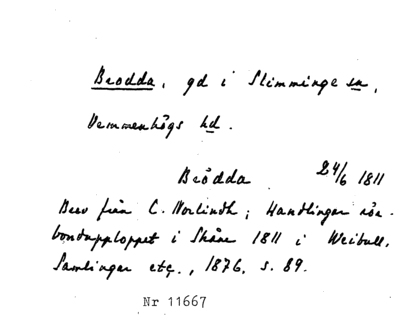 Brodda, gd i Slimminge sn,
Vemmenhögs hd.
Brödda 24/6 1811
Brev från C. Norlindh; Handlingar rör.
bondupploppet i Skåne 1811 i Weibull,
Samlingar etc., 1876. s. 89.
Nr 11667